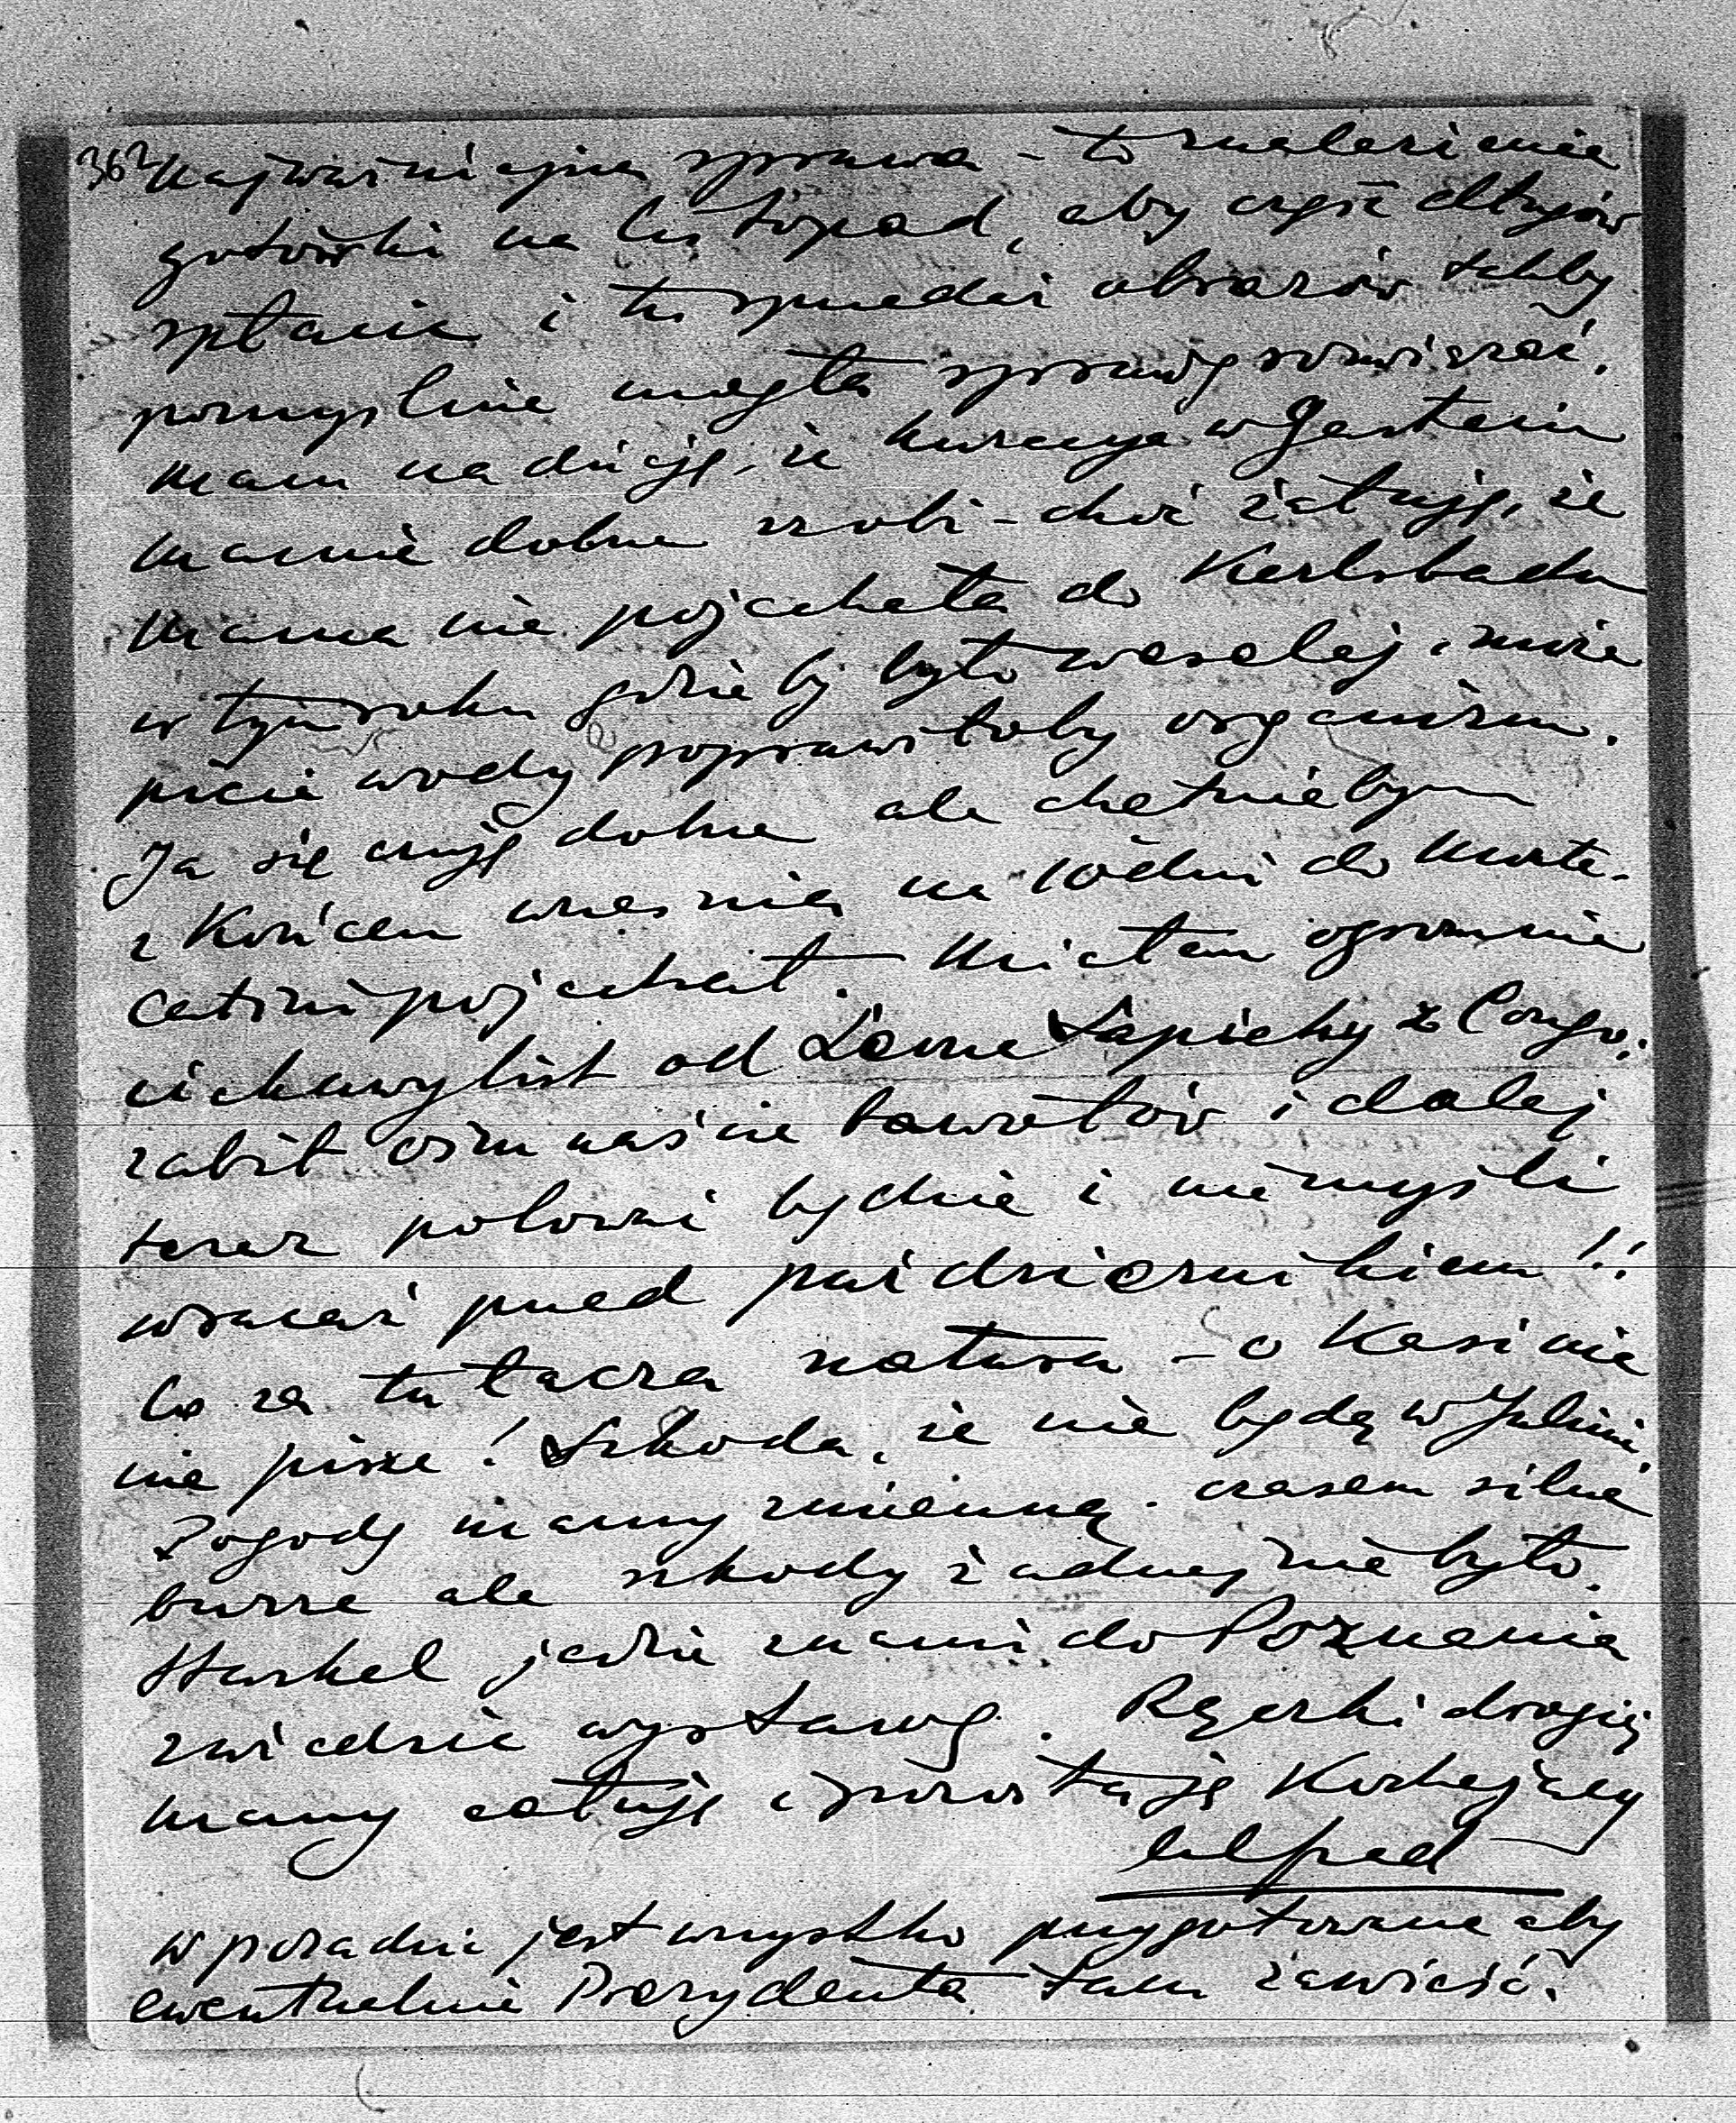 362 najważniejsza sprawa - to znalezienie
gotówki na listopad, aby część długów
spłacić i tu sprzedaż obrazów takby
pomyślnie mogła sprawę rozwiązać.
Mam nadzieję, że kuracya w Gastein
mamie dobrze zrobi - choć żałuję, że
mama nie pojechała do Karlsbadu
w tym roku gdzie by było weselej i może
picie wody poprawiłoby organizm.
Ja się czuję dobrze ale chętnie bym
z końcem września na 10 dni do Monte-
catini pojechał. Miałem ogromnie
ciekawy list od Leona Sapiehy z Congo.
zabił ośmnaście bawołów i dalej
teraz polować będzie i nie myśli
wracać przed październikiem!!
Co za tułacza natura - o Kasi nic
nie pisze! Szkoda, że nie będą w Julinie
Pogodę mamy zmienną. czasem silne
burze ale szkody żadnej nie było.
jedzie z nami do Poznania
zwiedzić wystawę. Rączki drogiej
mamy całuję i pozostaję Kochający
Alfred
W porządku jest wszystko przygotowane aby
ewentualnie Prezydenta tam zawieść.